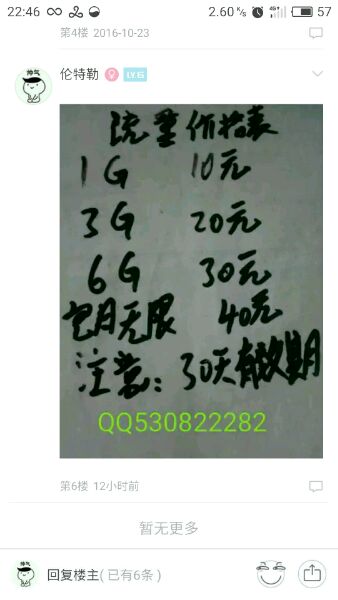 22:46 2.60 K/s 4G 57
第4楼 2016-10-23
帅气
伦特勒 LV.6
流量价格表
1G 10元
3G 20元
6G 30元
包月无限 40元
注意：30天有效期
QQ530822282
第6楼 12小时前
暂无更多
帅气
回复楼主(已有6条)